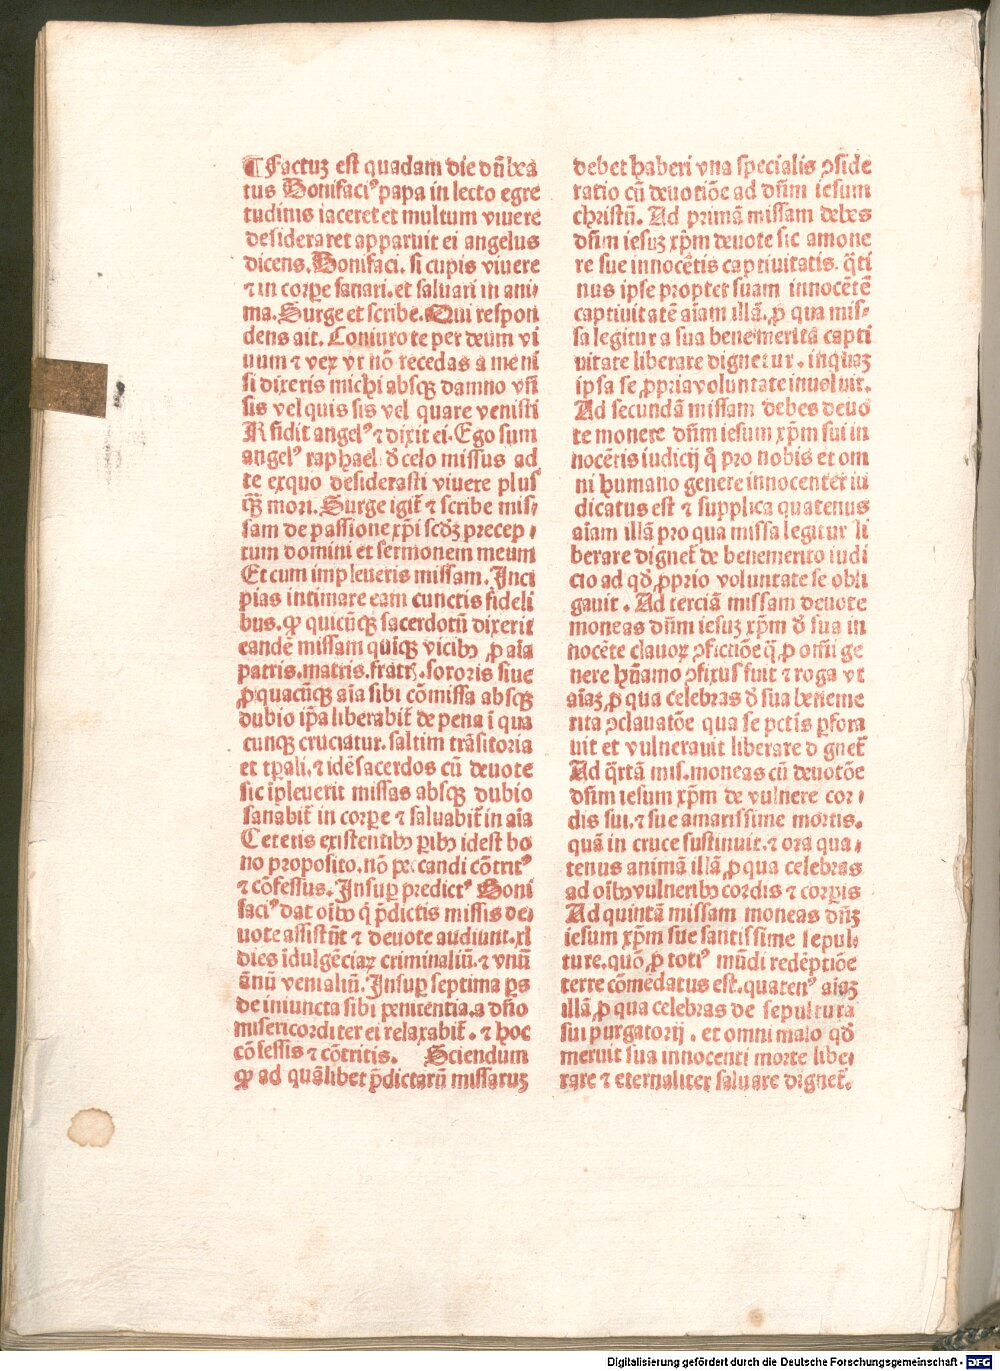 ¶Factuʒ est quadam die dn̄ bea
tus Bonifaciꝰ papa in lecto egre
tudinis iaceret et multum viuere
desideraret apparuit ei angelus
dicens. Bonifaci. si cupis viuere
⁊ in corꝑe sanari. et saluari in ani⸗
ma. Surge et scribe. Qui respon
dens ait. Coniuro te per deum vi
uum ⁊ veꝝ vt nō recedas a me ni
si dixeris michi absqʒ damno vst̄
sis vel quis sis vel quare venisti
Rn̄dit angelꝰ ⁊ dixit ei. Ego sum
angelꝰ raphael d̄ celo missus ad
te exquo desiderasti viuere plusꝰ
qʒ̄ mori. Surge igit̄ ⁊ scribe mis⸗
sam de passione xp̄i scd̄ʒ precep⸗
tum domini et sermonem meum
Et cum impleueris missam. Inci
pias intimare eam cunctis fideli
bus. ꝙ quicūqʒ sacerdotū dixerit
eandē missam quīqʒ vicibꝫ ꝓ aīa
patris. matris. fratrꝭ. sororis siue
ꝓ quacūqʒ aīa sibi cōmissa absqʒ
dubio ip̄a liberabit̄ de pena ī qua
cunqʒ cruciatur. saltim trāsitoria
et tp̄ali. ⁊ idē sacerdos cū deuote
sic īpleuerit missas absqʒ dubio
sanabit̄ in corꝑe ⁊ saluabit̄ in aīa
Ceteris existentibꝫ ꝑibꝫ idest bo
no proposito. nō peccandi cōtritꝰ
⁊ cōfessus. Insuꝑ predictꝰ Boni
faciꝰ dat oībꝫ q̄ p̄dictis missis de⸗
uote assistūt ⁊ deuote audiunt. xl
dies īdulgēciaꝝ criminaliū. ⁊ vnū
ānū venialiū. Insuꝑ septima ꝑs
de iniuncta sibi penitentia. a dn̄o
misericorditer ei relaxabit̄. ⁊ hoc
cōfessis ⁊ cōtritis. Sciendum
ꝙ ad quālibet p̄dictarū missaruʒ
debet haberi vna specialis ꝯside
ratio cū deuotiōe ad dn̄m iesum
christū. Ad primā missam debes
dn̄m iesuʒ xp̄m deuote sic amone
re sue innocētis captiuitatis. q̄ti
nus ipse propter suam innocētē
captiuitatē aīam illā. ꝓ qua mis⸗
sa legitur a sua benemerita capti
uitate liberare dignetur. inquaʒ
ipsa se ꝓpria voluntate inuoluit.
Ad secundā missam debes deuo
te monere dn̄m iesum xp̄m sui in
nocētis iudicij q̄ pro nobis et om
ni humano genere innocenter iu
dicatus est ⁊ supplica quatenus
aīam illā pro qua missa legitur li
berare dignet̄ de benemerito iudi
cio ad qd̄ ꝓprio voluntate se obli
gauit. Ad terciā missam deuote
moneas dn̄m iesuʒ xp̄m d̄ sua in
nocēte clauoꝝ ꝯfictiōe q̄ ꝓ om̄i ge
nere hūamo ꝯfixus fuit ⁊ roga vt
aīaʒ ꝓ qua celebras d̄ sua beneme
rita ꝯclauatōe qua se pctīs ꝑfora
uit et vulnerauit liberare dignet̄
Ad q̄rtā mis. moneas cū deuotōe
dn̄m iesum xp̄m de vulnere cor⸗
dis sui. ⁊ sue amarissime mortis.
quā in cruce sustinuit. ⁊ ora qua⸗
tenus animā illā ꝓ qua celebras
ad oībꝫ vulneribꝫ cordis ⁊ corꝑis
Ad quintā missam moneas dn̄ʒ
iesum xp̄m sue santissime sepul⸗
ture. quō ꝓ totiꝰ mūdi redēptiōe
terre cōmēdatus est. quatenꝰ aīaʒ
illā ꝓ qua celebras de sepultura
sui purgatorij. et omni malo qd̄
meruit sua innocenti morte libe⸗
rare ⁊ eternaliter saluare dignet̄.
Digitalisierung gefördert durch die Deutsche Forschungsgemeinschaft - DFG